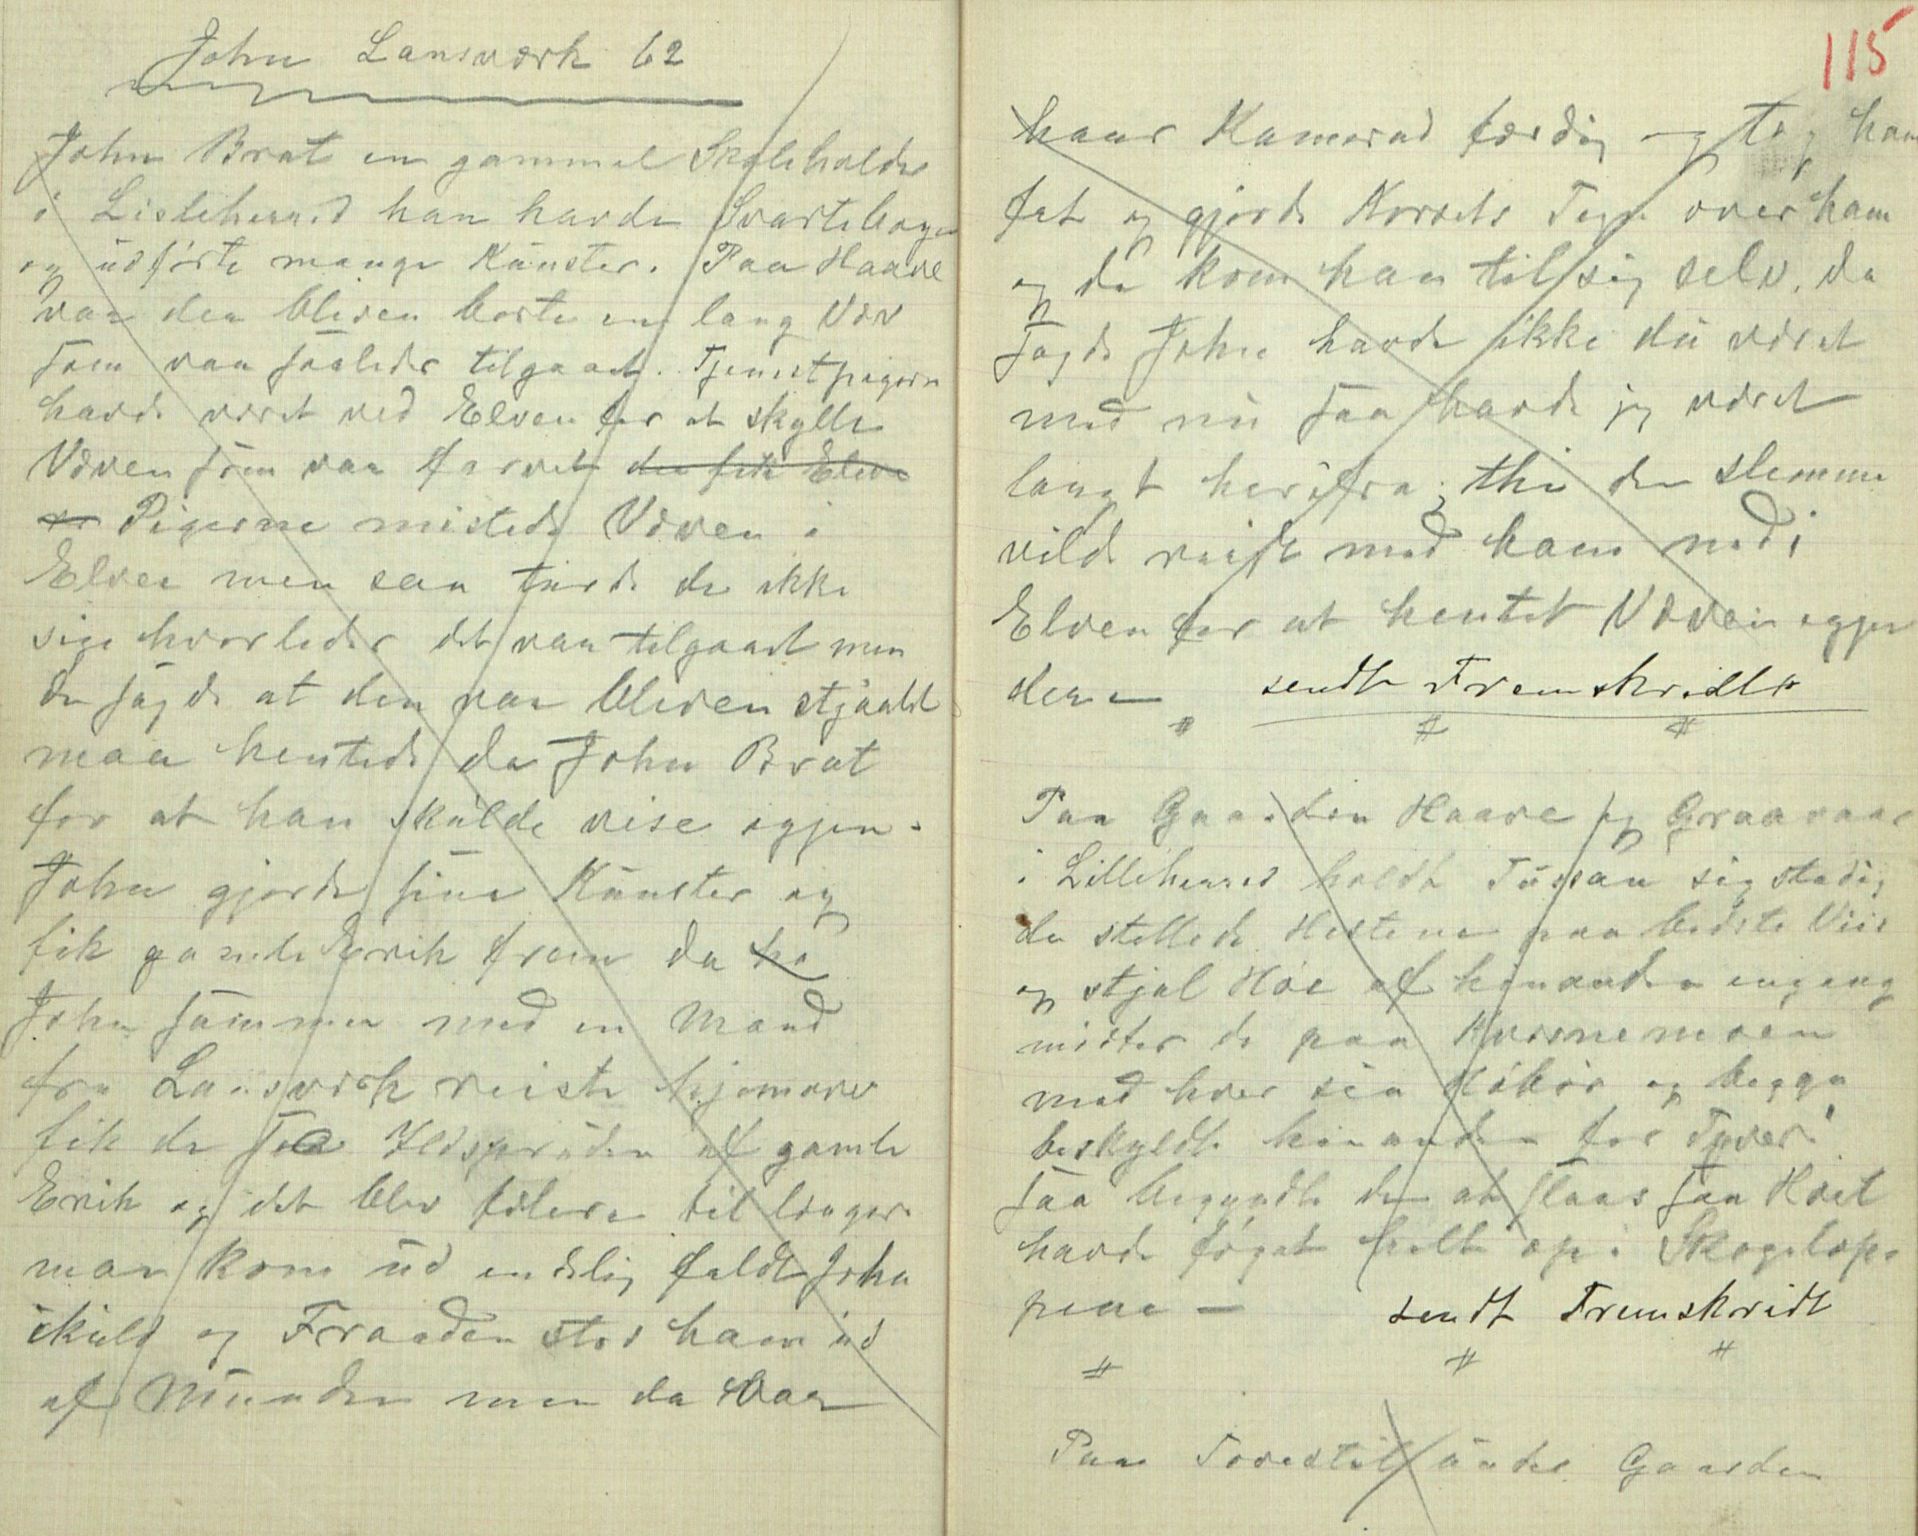 John Lansværk 62
John Brat en gammel Skoleholder
i Lisleherred han havde Svartebogen
og udførte mange Kunster. Paa Haave
var den bleven borte en lang Væv
som var saaledes tilgaaet. Tjenestpigern
havde været ved Elven for at skylle
Væven som var farvet den fik Elve
Pigerne mistede Væven i
Elven men saa turde de ikke
sige hvorledes det var tilgaaet men
de sagde at den var bleven stjaalet
maa hentede da John Brat
for at han skulde vise igjen.
John gjorde sine Kunster og
fik gamle Erik frem da
John sammen med en Mand
fra Lansværk reiste hjemover
fik de se Ildspruden af gamle
Erik og det blev følere til længere
man kom ud endelig faldt John
ikuld og Fraaden stod ham ud
af Munden men da var
hans Kamerad færdig og tog ham
fat og gjorde Korsets Tegn over ham
og da kom han til sig selv. da
sagde John havde ikke du været
med nu saa havde jeg været
langt herifra; thi den slemme
vilde reist med ham ned i
Elven for at hentet Væven igjen
den – sendt Fremskridt
# # #
Paa Gaarden Haave og Graavaar
i Lilleherred holdt Tussan sig stadig
de stellede Hestene paa bedste Viis
og stjal Høe af hinanden engang
møttes de paa Kvernemoen
med hver sin Høbør og begge
beskyldte hinanden for Tyveri
saa begyndte de at slaas saa Høet
havde føget helt op i Skogelop-
pene – sendt Fremskridt
# # #
Paa Tovestil under Gaarden
115